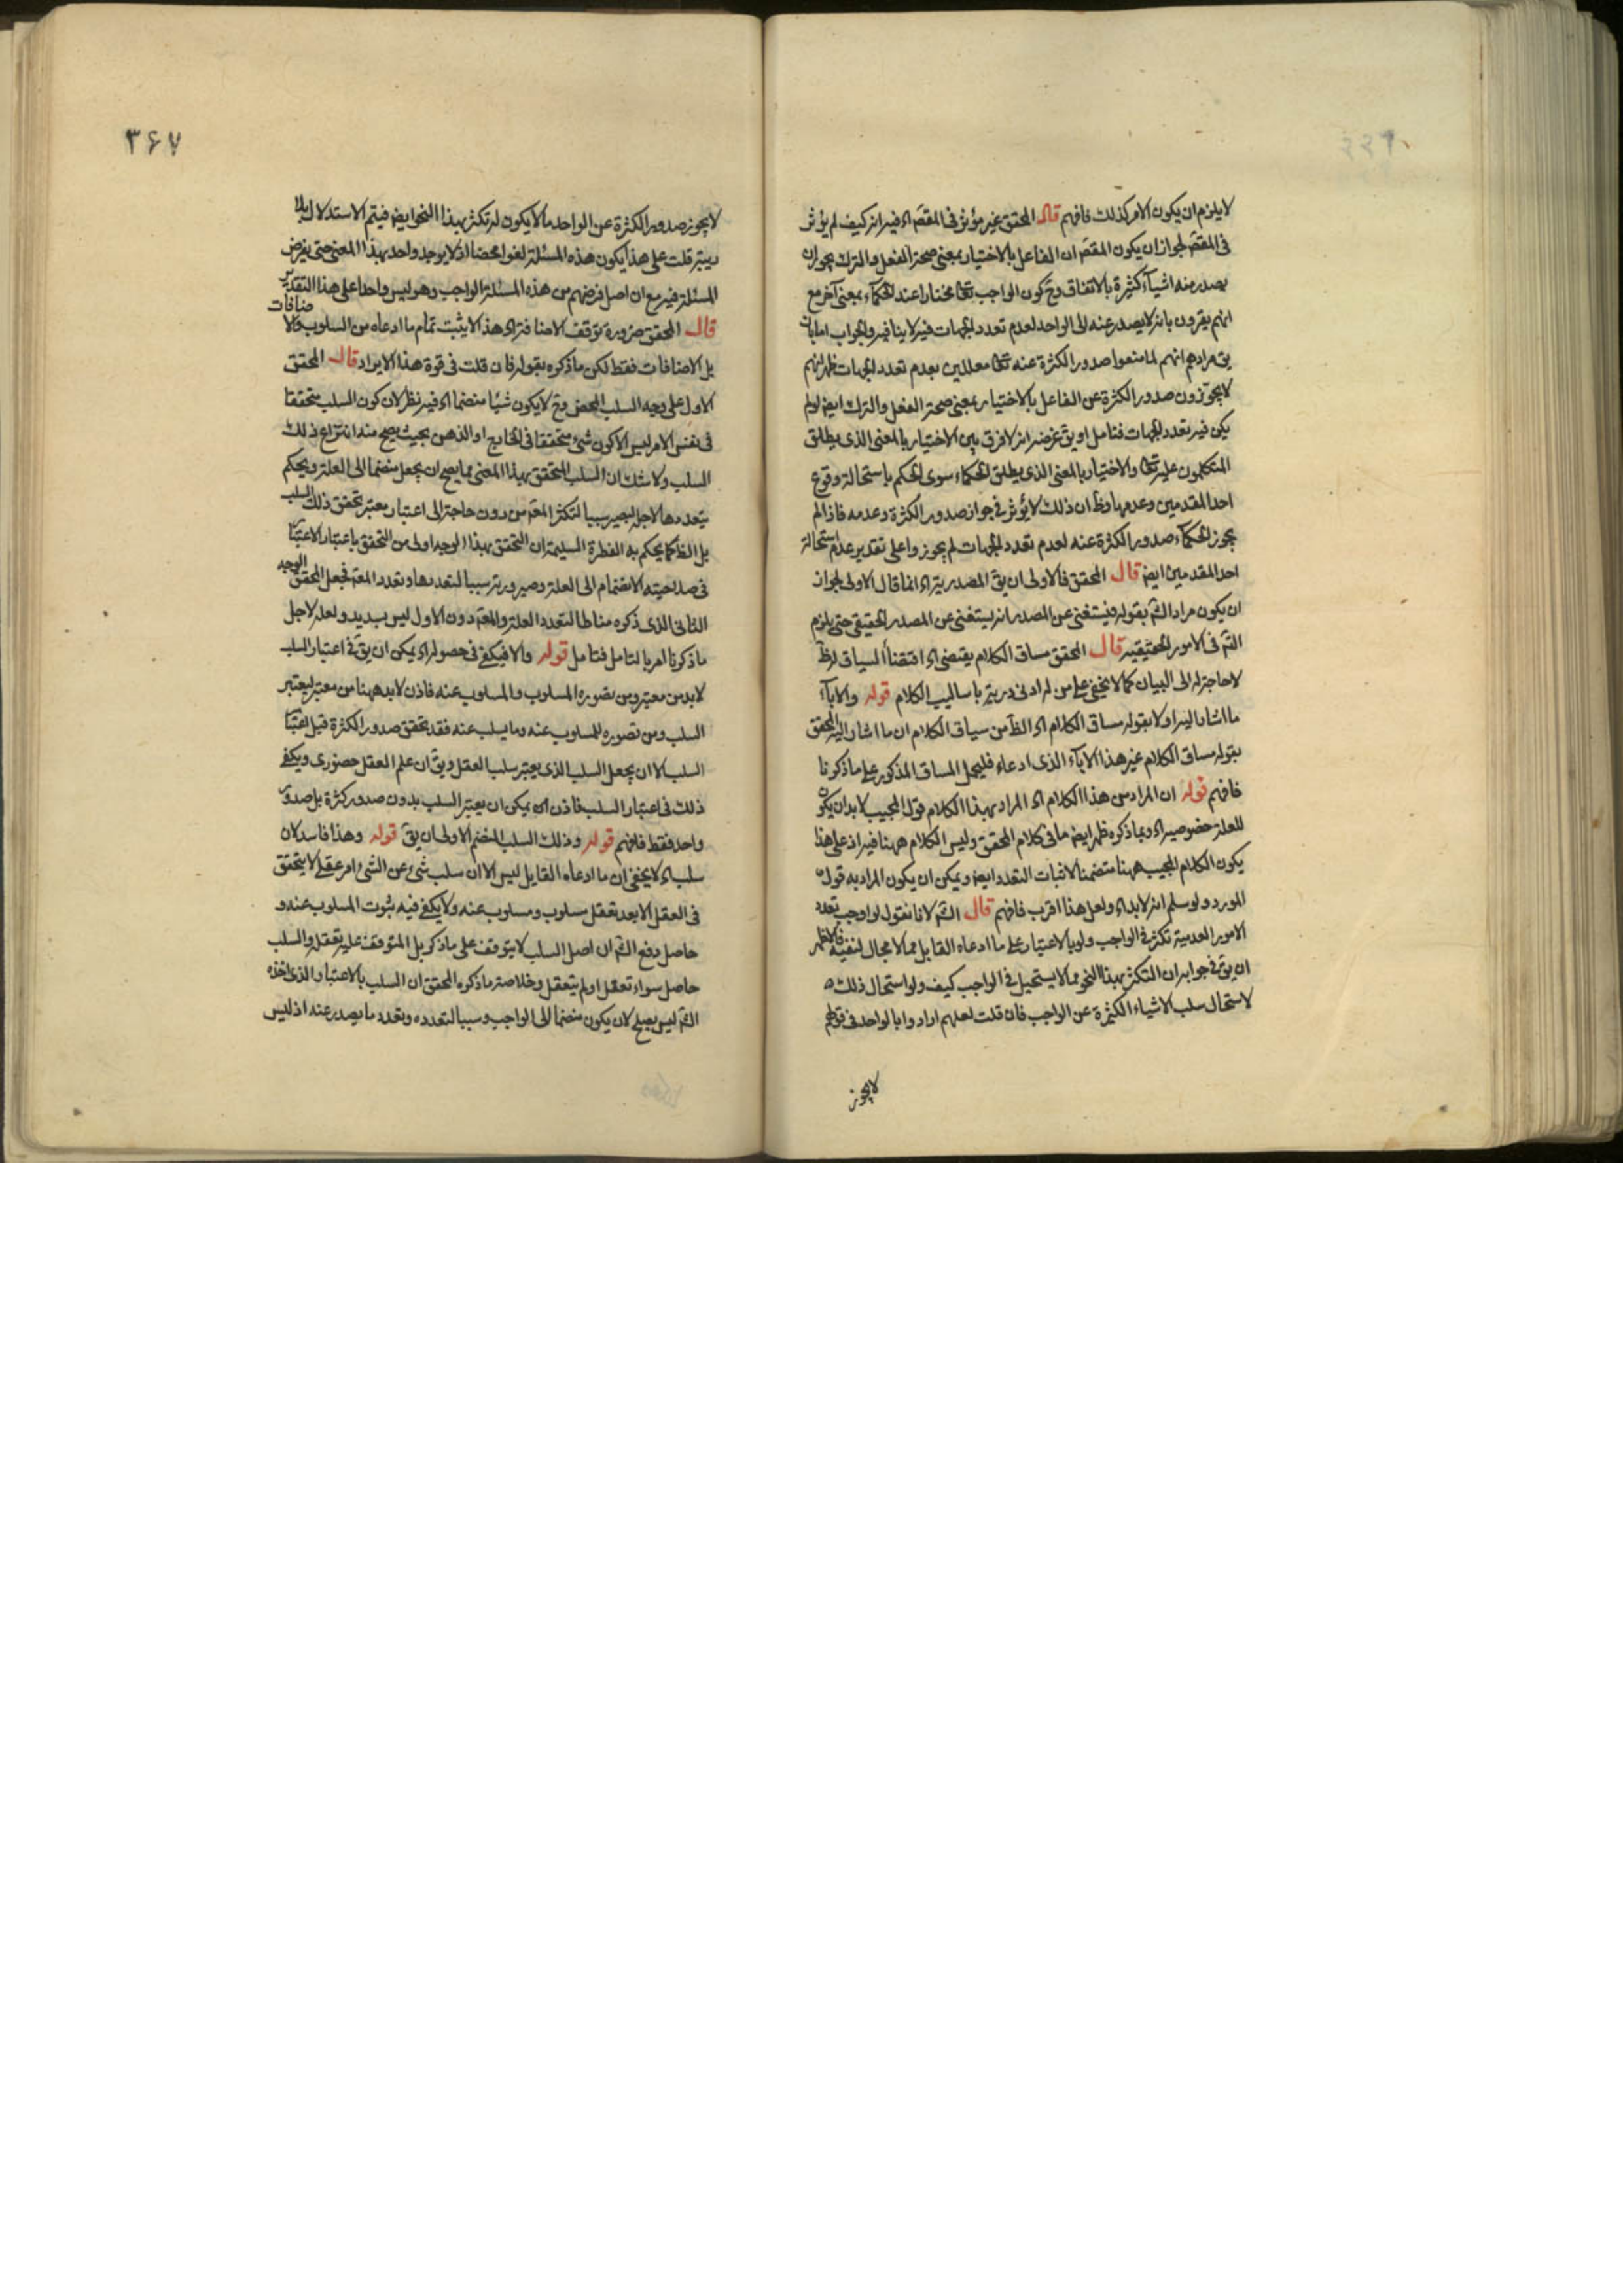 لا يلزم ان يكون الامر كذلك فافهم قال المحقق غير مؤثر فى المقصَ اه فيه انه كيف لم يؤثر
فى المقصَ لجواز ان يكون المقصَ ان الفاعل بالاختيار بمعنى صحة الفعل والترك يجوز ان
يصدر منه اشياء كثيرة بالاتفاق وح كون الواجب تعالى مختارا عند الحكماء بمعنى آخر مع
انهم يقرون بانه لا يصدر عنه الا الواحد لعدم تعدد الجهات فيه لا ينافيه والجواب اما بان
يق مرادهم انهم لما منعوا صدور الكثرة عنه تعالى معللين بعدم تعدد الجهات ظهر انهم
لا يجوزون صدور الكثرة عن الفاعل بالاختيار بمعنى صحة الفعل والترك ايض لو لم
يكن فيه تعدد الجهات فتامل او يق غرضه انه لا فرق بين الاختيار بالمعنى الذى يطلق
المتكلمون عليه تعالى والاختيار بالمعنى الذى يطلق الحكماء سوى الحكم باستحالة وقوع
احد المقدمين وعدمها وظ ان ذلك لا يؤثر فى جواز صدور الكثرة وعدمه فاذا لم
يجوز الحكماء صدور الكثرة عنه لعدم تعدد الجهات لم يجوزوا على تقدير عدم استحالة
احد المقدمين ايض قال المحقق فالاولى ان يق المصدرية اه انما قال الاولى لجواز
ان يكون مراد الش بقوله فيستغنى عن المصدر انه يستغنى عن المصدر الحقيقى حتى يلزم
التم فى الامور الحقيقيه قال المحقق مساق الكلام يقتضى اه اقتضاء السياق له ظ
لا حاجة له الى البيان كما لا يخفى على من له ادنى دربة باساليب الكلام قوله والاباء
ما اشار اليه اولا بقوله مساق الكلام اه الظ من سياق الكلام ان ما اشار اليه المحقق
بقوله مساق الكلام غير هذا الاباء الذى ادعاه فليحمل المساق المذكور على ما ذكرنا
فافهم قوله ان المراد من هذا الكلام اه المراد بهذا الكلام قول المجيب لابد ان يكون
للعلة خصوصية اه وبما ذكره ظهر ايض ما فى كلام المحقق وليس الكلام ههنا فيه اذ على هذا
يكون الكلام المجيب ههنا متضمنا لاثبات التعدد ايض ويمكن ان يكون المراد به قول
المورد ولو سلم انه لابد اه ولعل هذا اقرب فافهم قال الش لانا نقول لو اوجب تعدد
الامور العدمية تكثر فى الواجب ولو بالاعتبار على ما ادعاه القايل مما لا مجال لنفيه فالاظهر
ان يق فى جوابه ان التكثر بهذا النحو مما لا يستحيل فى الواجب كيف ولو استحال ذلك
لاستحال سلب الاشياء الكثيرة عن الواجب فان قلت لعلهم ارادوا بالواحد فى قولهم
لا يجوز
٣۶٧
لا يجوز صدور الكثرة عن الواحد ما لا يكون له تكثر بهذا النحو ايض فيتم الاستدلال بلا
ريبة قلت على هذا يكون هذه المسئلة لغوا محضا اذ لا يوجد واحد بهذا المعنى حتى يفرض
المسئلة فيه مع ان اصل غرضهم من هذه المسئلة الواجب وهو ليس واحدا على هذا التقدير
قال المحقق ضرورة توقف الاضافة اه هذا لا يثبت تمام ما ادعاه من السلوب والاضافات
بل الاضافات فقط لكن ما ذكره بقوله فان قلت فى قوة هذا الايراد قال المحقق
الاول على وجه السلب المحض وح لا يكون شيئا منضما اه فيه نظر لان كون السلب متحققا
فى نفس الامر ليس الا كون شئ متحققا فى الخارج او الذهن بحيث يصح منه انتزاع ذلك
السلب ولا شك ان السلب المتحقق بهذا المعنى مما يصح ان يجعل منضما الى العلة ويحكم
بتعددها لاجله ليصير سببا لتكثر المعَ من دون حاجة الى اعتبار معتبر تحقق ذلك السلب
بل الظ كما يحكم به الفطرة السليمة ان التحقق بهذا الوجه اولى من التحقق باعتبار الاعتبار
فى صلاحيته الانضمام الى العلة وصيرورته سببا لتعددها وتعدد المعَ فجعل المحقق الوجه
الثانى الذى ذكره مناطا لتعدد العلة والمعَ دون الاول ليس بسديد ولعله لاجل
ما ذكرنا امر بالتامل فتامل قوله والا فيكفى فى حصوله اه يمكن ان يق فى اعتبار السلب
لا بد من معتبر ومن تصوره المسلوب والمسلوب عنه فاذن لا بد ههنا من معتبر ليعتبر
السلب ومن تصوره للمسلوب عنه وما يسلب عنه فقد تحقق صدور الكثرة قبل اعتبار
السلب الا ان يجعل السلب الذى يعتبر سلب العقل ويق ان علم العقل حضورى ويكفى
ذلك فى اعتبار السلب فاذن اه يمكن ان يعتبر السلب بدون صدور كثرة بل صدور
واحد فقط فافهم قوله وذلك السلب المنضم الاولى ان يق قوله وهذا فاسد لان
سلب اه لا يخفى ان ما ادعاه القايل ليس الا ان سلب شئ عن الشئ امر عقلى لا يتحقق
فى العقل الا بعد تعقل مسلوب ومسلوب عنه ولا يكفى فيه ثبوت المسلوب عنه و
حاصل دفع الش ان اصل السلب لا يتوقف على ما ذكر بل المتوقف عليه تعقله والسلب
حاصل سواء تعقل او لم يتعقل وخلاصة ما ذكره المحقق ان السلب بالاعتبار الذى اخذه
الش ليس يصلح لان يكون منضما الى الواجب وسببا لتعدده وتعدد ما يصدر عنه اذ ليس